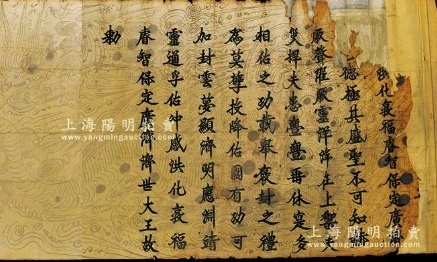 洪化衍福睿智保定廣
德極其盛聖不可知
厥聲濯厥靈洋洋在上
災捍大患亹亹垂休寔多
相佑之功載舉褒封之禮
爲莫孽授降佑國有功可
加封雲夢顯濟明應淵靖
靈通孚佑沖感洪化衍福
睿智保定廣濟濟世大王故
勅
上海陽明拍賣
www.yangmingauction.com
上海陽明拍賣
www.yangmingauction.com